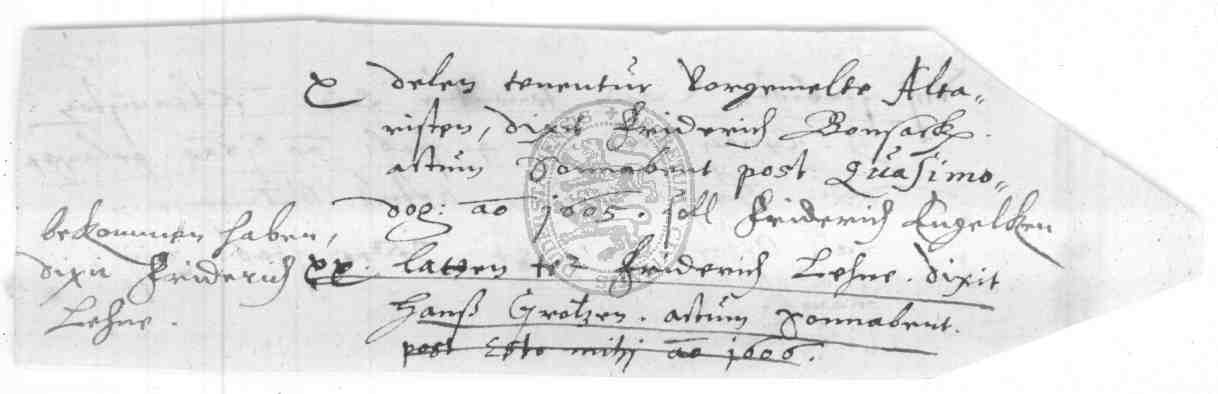 X delen tenentur Vorgemelte Alta„
risten, dixit Friderich Bonsack.
actum Sonnabent post Quasimo„
dog: ao 1605. soll Friderich Engelken
bekommen haben,
dixit Friderich
Lehne.
XX. latzen Friderich Lehne. dixit
Hanß Grotzen. actum Sonnabent.
post Esto mihi ao 1606.